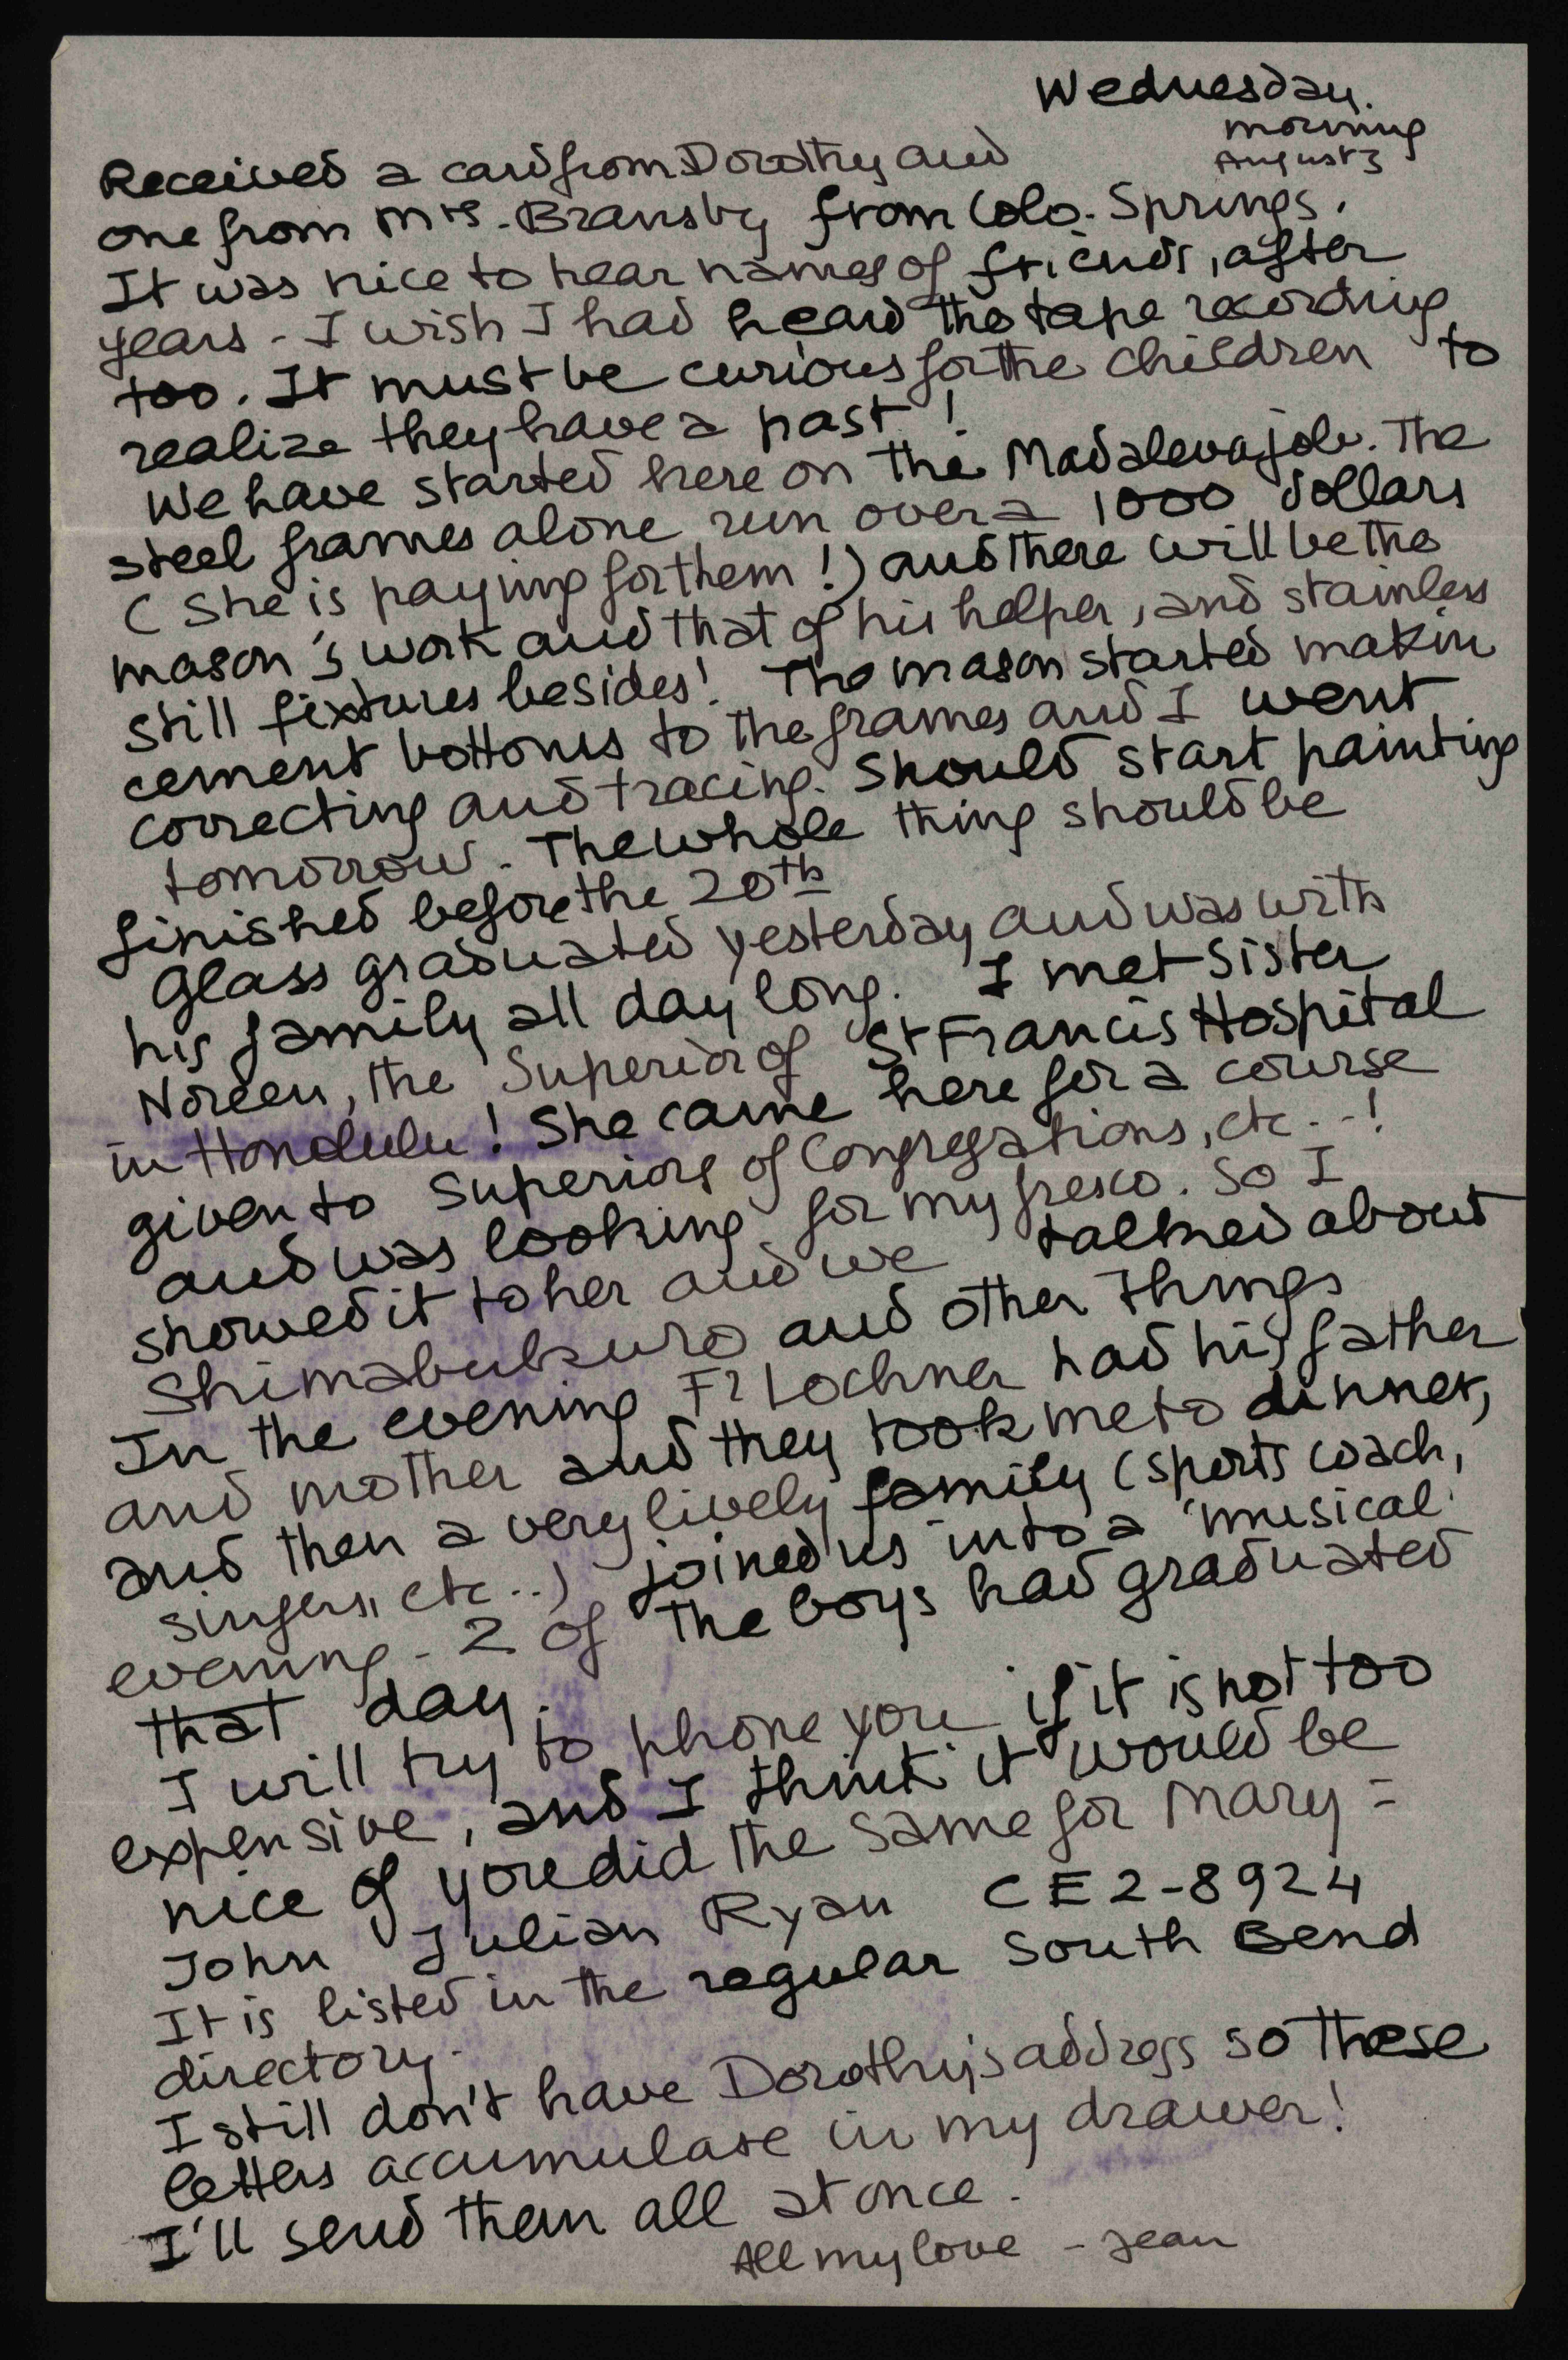 Wednesday.
morning
August 3
Received a card from Dorothy and
one from Mrs. Bransby from Colo. Springs.
It was nice to hear names of friends, after
years - I wish I had heard the tape recording
too. It must be curious for the children to
realize they have a past!
We have started here on the Madaleva job. The
steel frames alone run over a 1000 dollars
(She is paying for them!) and there will be the
mason's work and that of his helper, and stainless
still fixtures besides! The mason started makin
cement bottoms to the frames and I went
correcting and tracing. Should start painting
tomorrow. The whole thing should be
finished before the 20th
Glass graduated yesterday and was with
his family all day long. I met Sister
Noreen, the Superior of St Francis Hospital
in Honolulu! She came here for a course
given to Superiors of Congregations, etc..-!
and was looking for my fresco. So I
showed it to her and we talked about
Shimabukuro and other things
In the evening Fr Lochner had his father
and mother and they took me to dinner,
and then a very lively family (sports coach,
singers, etc..) joined us into a "musical
evening - 2 of the boys had graduated
that day.
I will try to phone you if it is not too
expensive, and I think it would be
nice of you did the same for Mary =
John Julian Ryan CE2-8924
It is listed in the regular South Bend
directory.
I still don't have Dorothy's address so these
letters accumulate in my drawer!
I'll send them all at once.
All my love - Jean